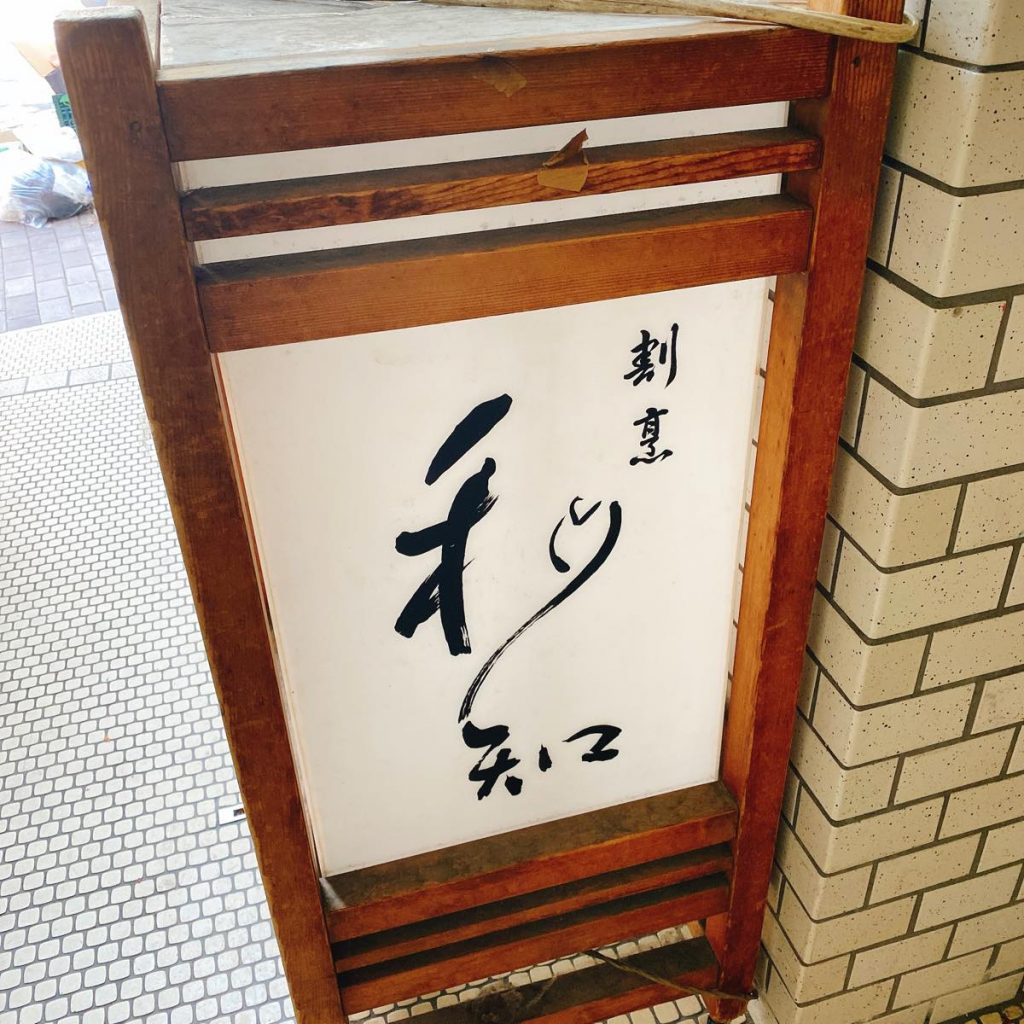 割烹
利知